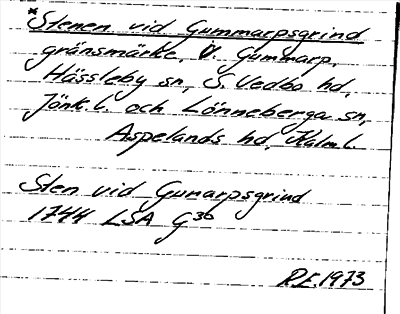 *Stenen vid Gummarpsgrind
gränsmärke, V. Gummarp,
Hässleby sn, S. Vedbo hd,
Jönk.l. och Lönneberga sn,
Aspelands hd, Kalm l.
Sten vid Gunarpsgrind
1744 LSA G36
R.E. 1973